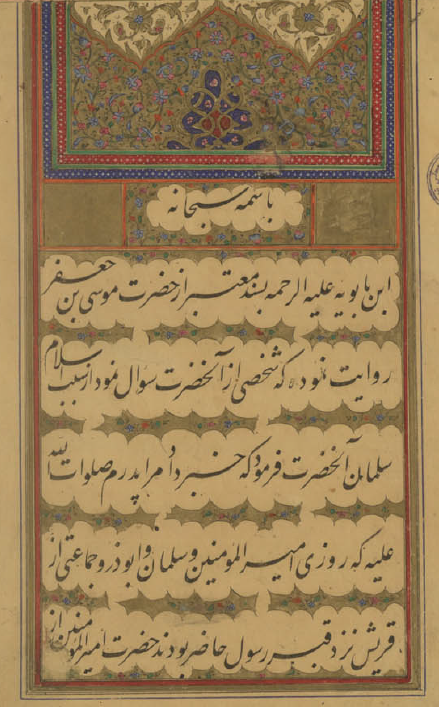 باسمه سبحانه
ابن بابویه علیه الرحمه بسند معتبر از حضرت موسی بن جعفر
روایت نموده که شخصی از آنحضرت سؤال نمود از سبب اسلام
سلمان آنحضرت فرمود که خبر داد مرا پدرم صلوات الله
علیه که روزی امیرالمؤمنین و سلمان و ابوذر و جماعتی از
قریش نزد قبر رسول حاضر بودند حضرت امیرالمؤمنین از